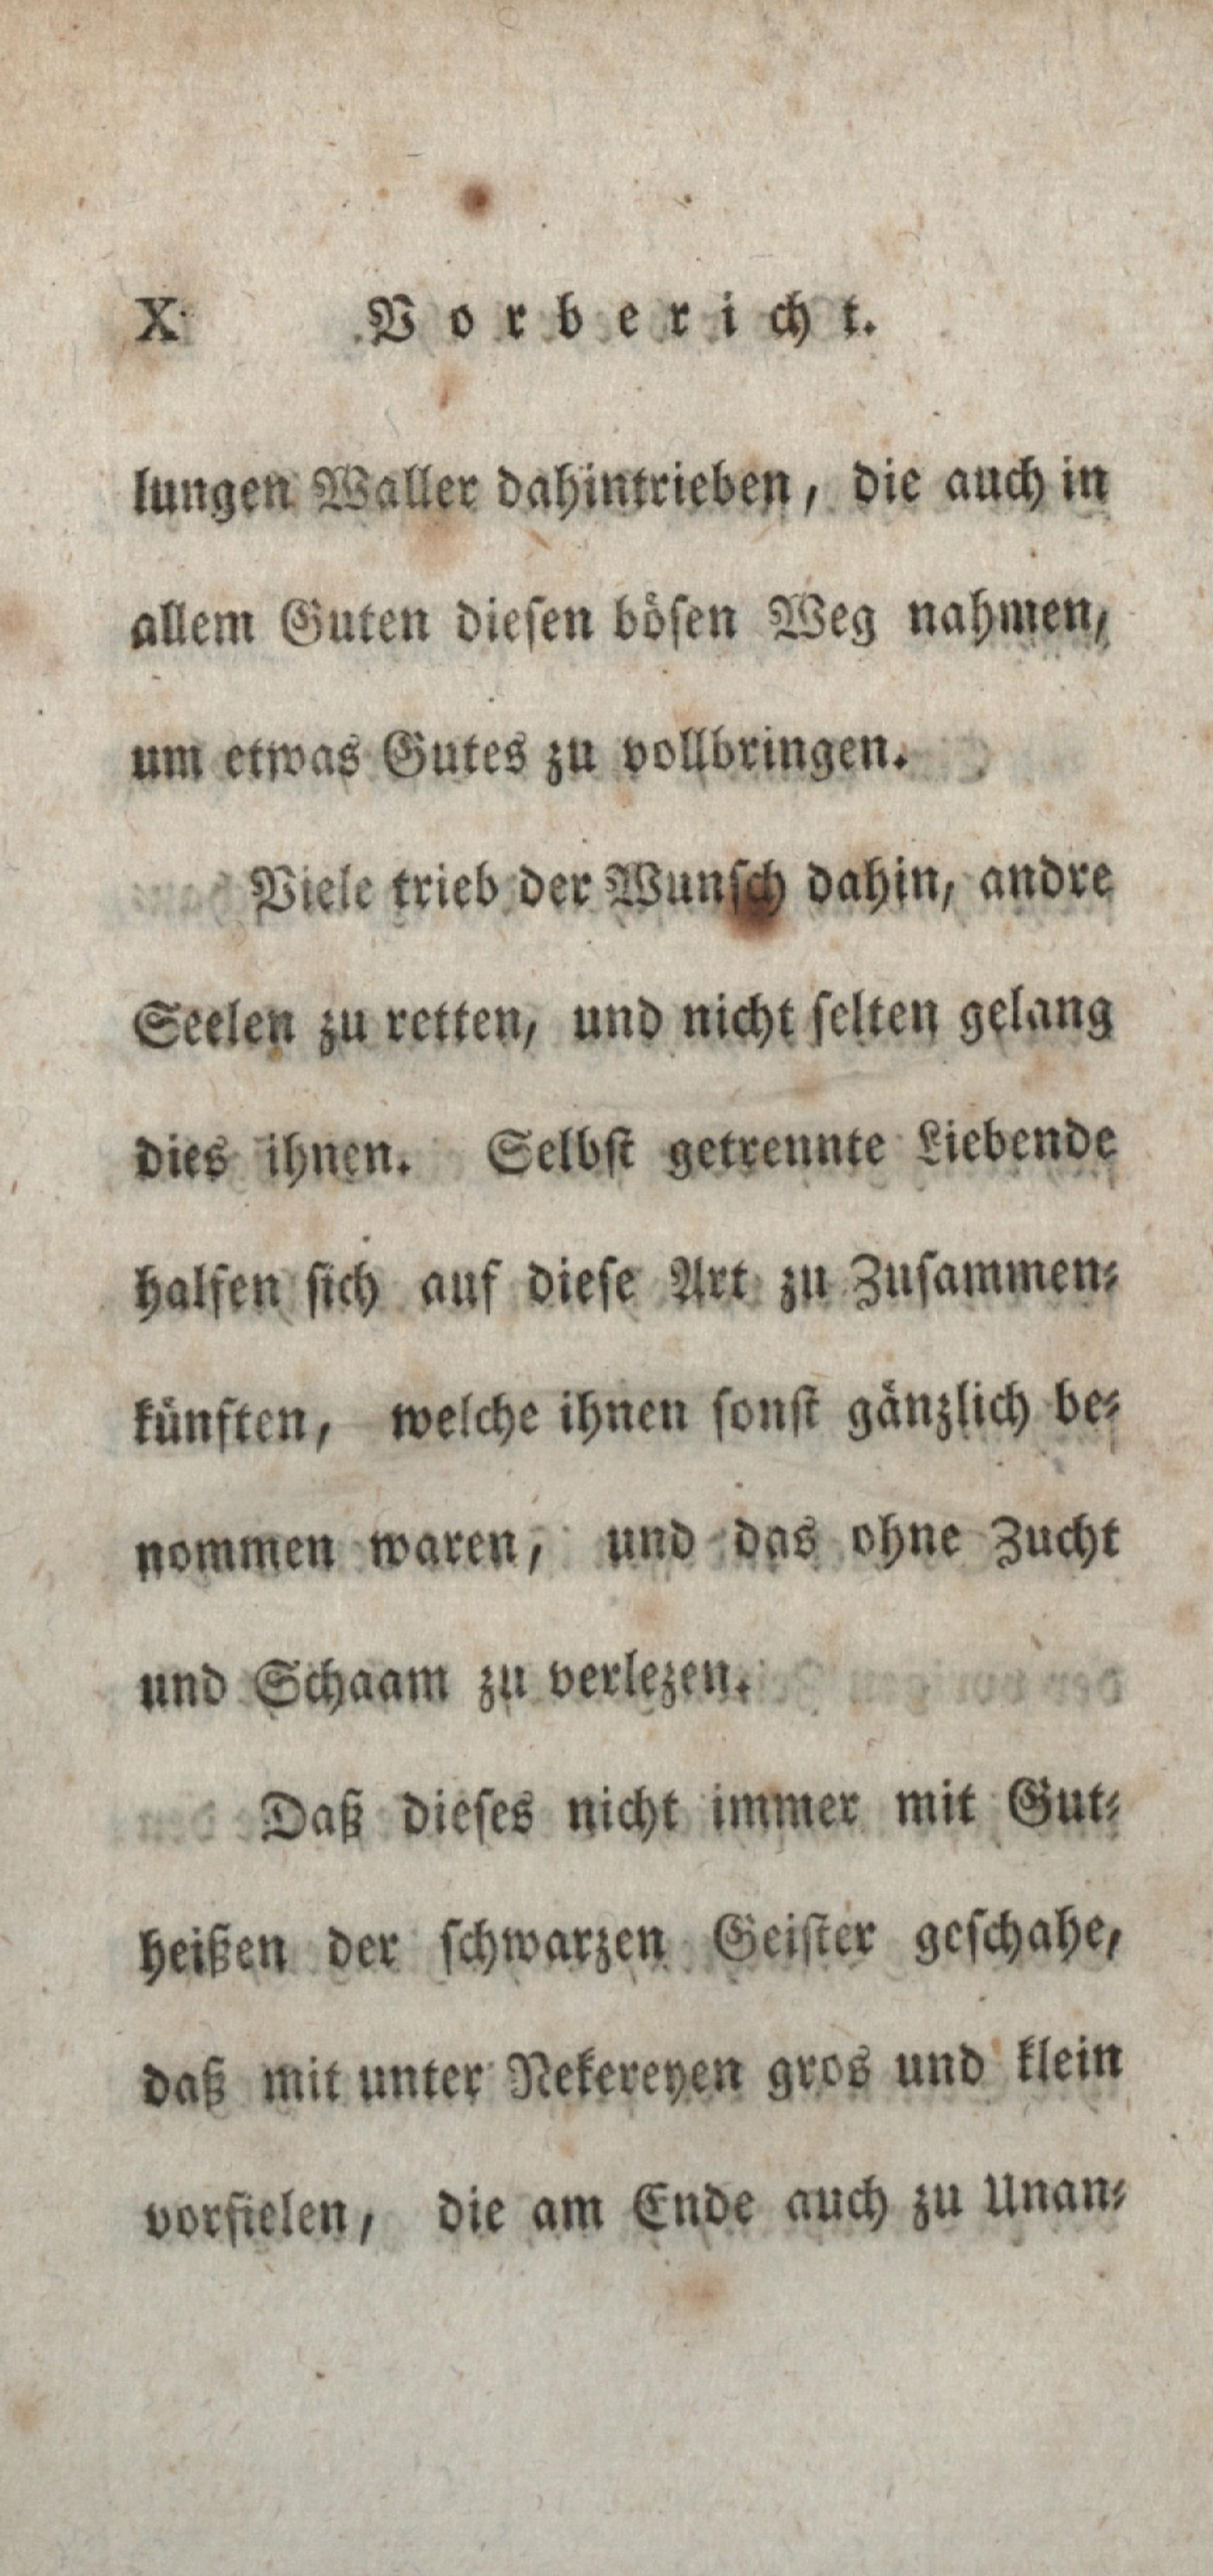 X Vorbericht.
lungen Waller dahintrieben, die auch in
allem Guten diesen bösen Weg nahmen,
um etwas Gutes zu vollbringen.
Viele trieb der Wunsch dahin, andre
Seelen zu retten, und nicht selten gelang
dies ihnen. Selbst getrennte Liebende
halfen sich auf diese Art zu Zusammen-
künften, welche ihnen sonst gänzlich be-
nommen waren, und das ohne Zucht
und Schaam zu verlezen.
Daß dieses nicht immer mit Gut-
heißen der schwarzen Geister geschahe,
daß mit unter Nekereyen gros und klein
vorfielen, die am Ende auch zu Unan-